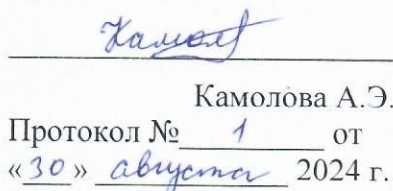 Камолова А.Э.
Протокол № 1 от
«30» августа 2024 г.